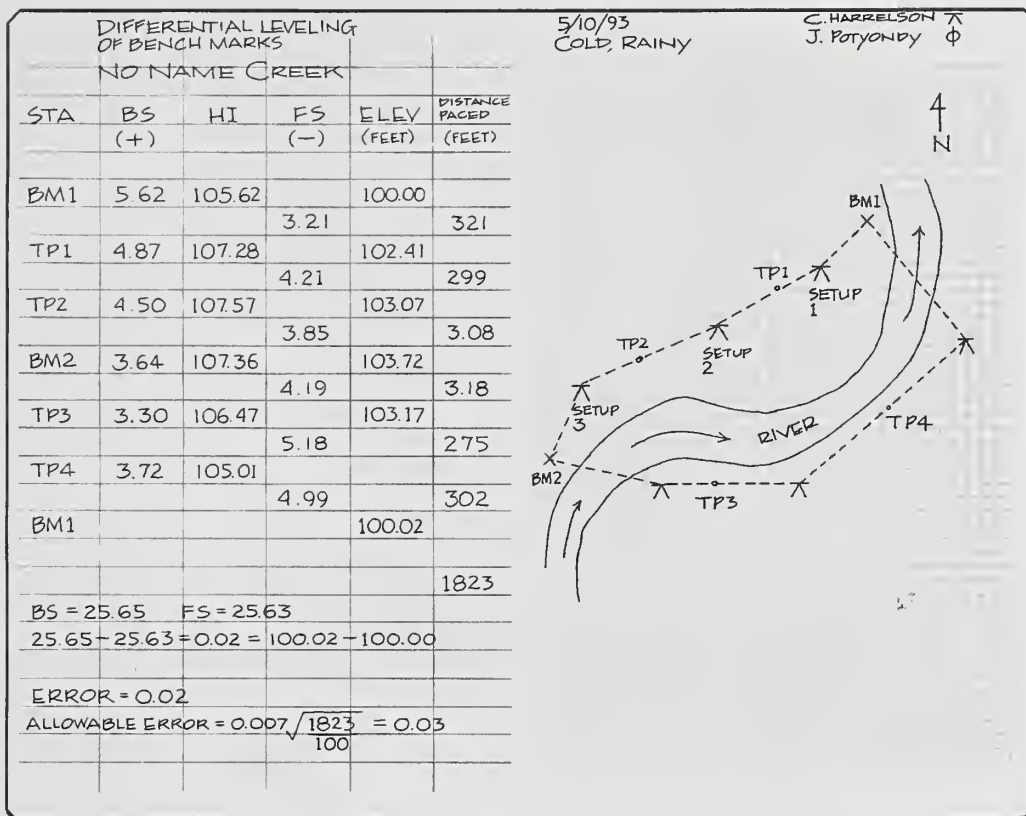 DIFFERENTIAL LEVELING
OF BENCH MARKS
NO NAME CREEK
STA BS HI FS ELEV DISTANCE PACED
(+) (−) (FEET) (FEET)
BM1 5.62 105.62 100.00
3.21 321
TP1 4.87 107.28 102.41
4.21 299
TP2 4.50 107.57 103.07
3.85 3.08
BM2 3.64 107.36 103.72
4.19 3.18
TP3 3.30 106.47 103.17
5.18 275
TP4 3.72 105.01
4.99 302
BM1 100.02
1823
BS = 25.65 FS = 25.63
25.65 − 25.63 = 0.02 = 100.02 − 100.00
ERROR = 0.02
ALLOWABLE ERROR = 0.007 √1823/100 = 0.03
5/10/93
COLD, RAINY
C. HARRELSON
J. POTYONDY
N
BM1
TP1
SETUP
1
TP2
SETUP
2
SETUP
3
RIVER
TP4
BM2
TP3